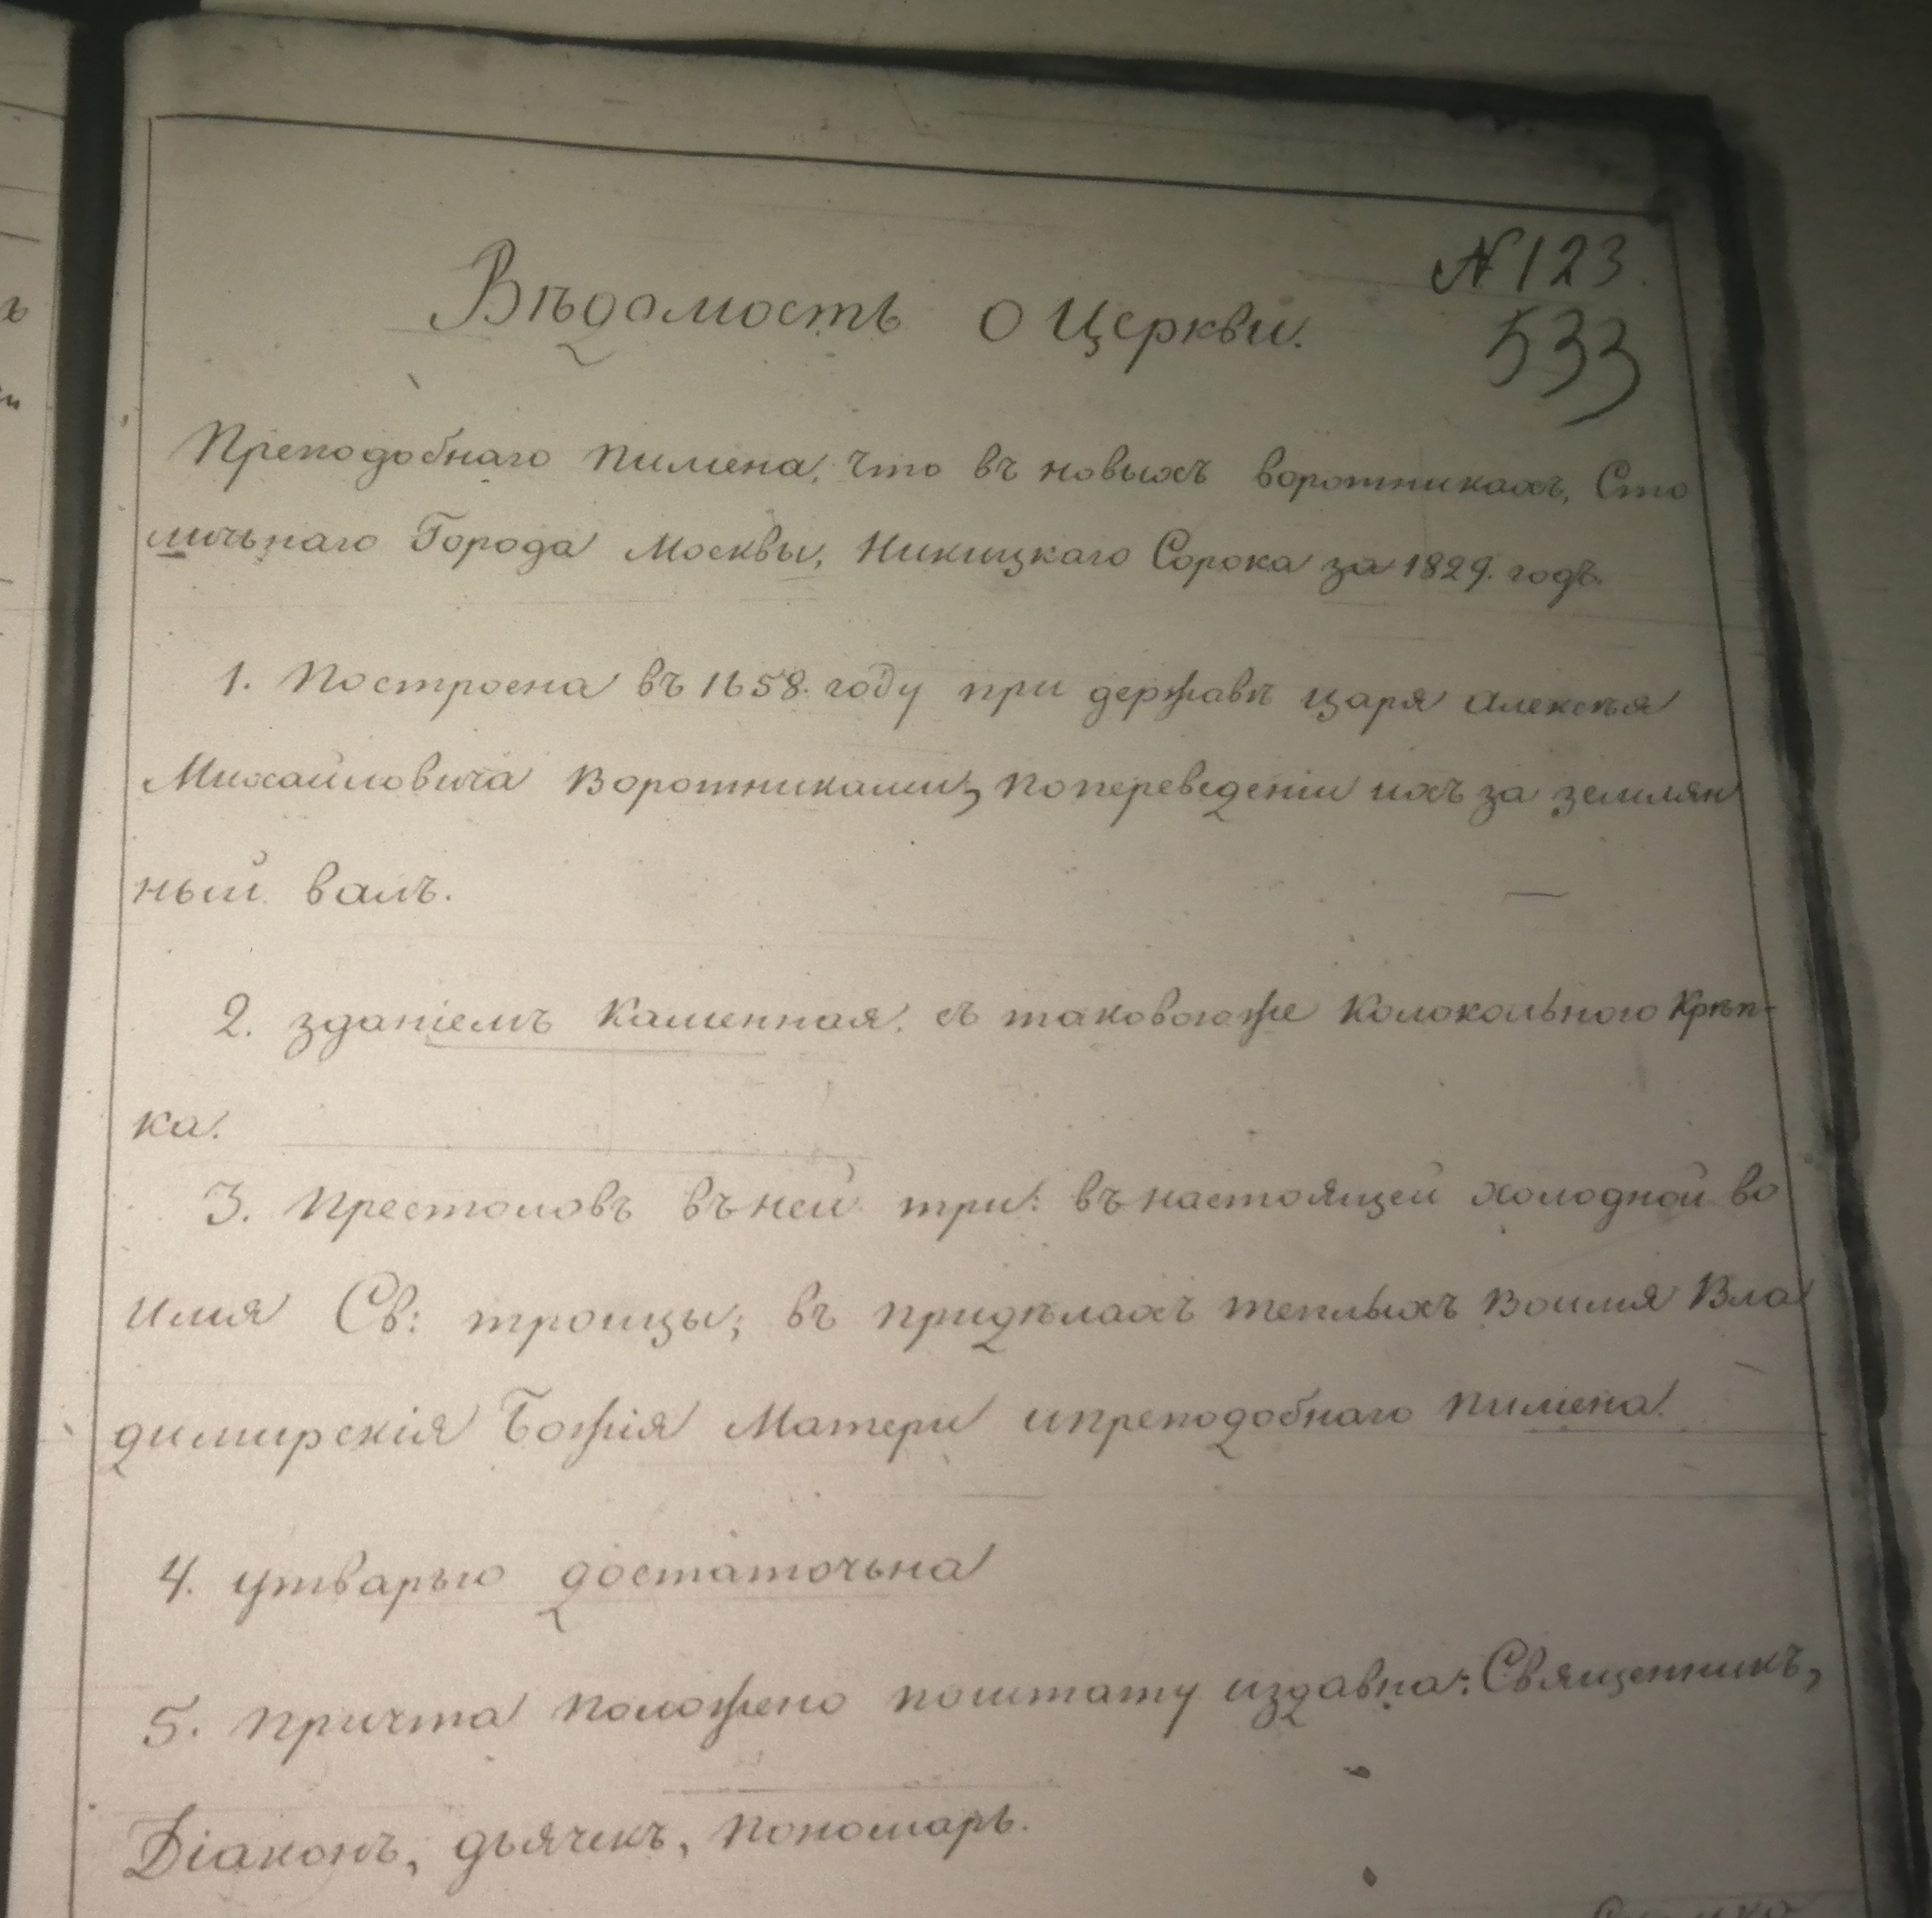 № 123.
Вѣдомость о Церкви.
533
Преподобнаго Пимена, что въ новыхъ воротникахъ, Сто
личьнаго Города Москвы, Никицкаго Сорока за 1829. годъ.
1. Построена въ 1658. году при державѣ царя Алексѣя
Михайловича Воротниками, по переведеніи ихъ за землян
ный валъ.
2. зданіемъ Каменная. съ таковогоже Колокольного Крѣп-
ка.
3. Престоловъ въ ней три: въ настоящей холодной во
имя Св: троицы; въ придѣлахъ теплыхъ Воимя Вла
димирскія Божія Матери ипреподобнаго Пимена.
4. утварью достаточьна
5. Причта Положено поштату издавна: Священникъ,
Діаконъ, дьячекъ, Пономарь.